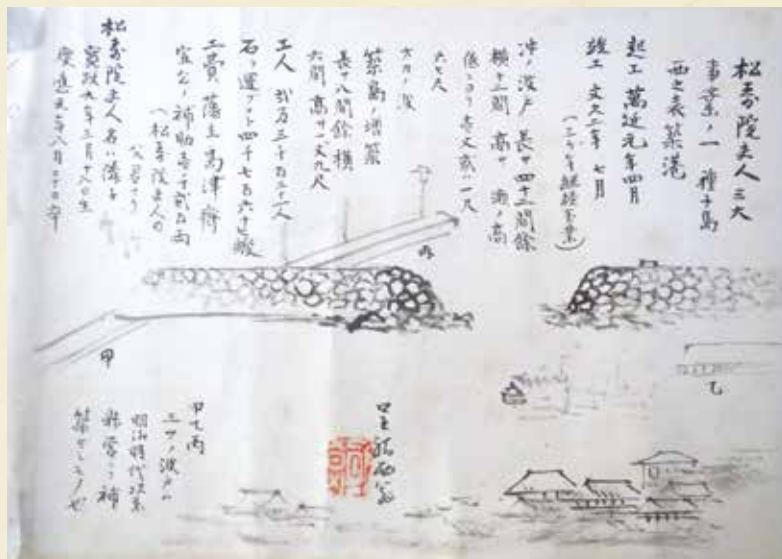 松寿院夫人三大
事業ノ一 種子島
西之表築港
起工 萬延元年四月
竣工 文久二年 七月
(三ヶ年継続事業)
沖ノ波戸 長サ四十三間餘
横十三間 高サ 瀬ノ高
低ニヨリ 壱丈 一尺
六七尺
築島ノ増築
長サ八間餘横
六間 高サ一丈九尺
工人 弐万三千
石ヲ運フコト四千七百六十 艘
工費 藩主島津齊
宣公ノ補助 千弐百両
(松寿院夫人の
父君ナリ
松寿院夫人名ハ隣子
寛政九年三月十八日生
慶應元年八月二十日卒
丙
甲
乙
甲乙丙
三ツノ波戸ハ
明治時代以来
県営ニテ補
築セシモノ也